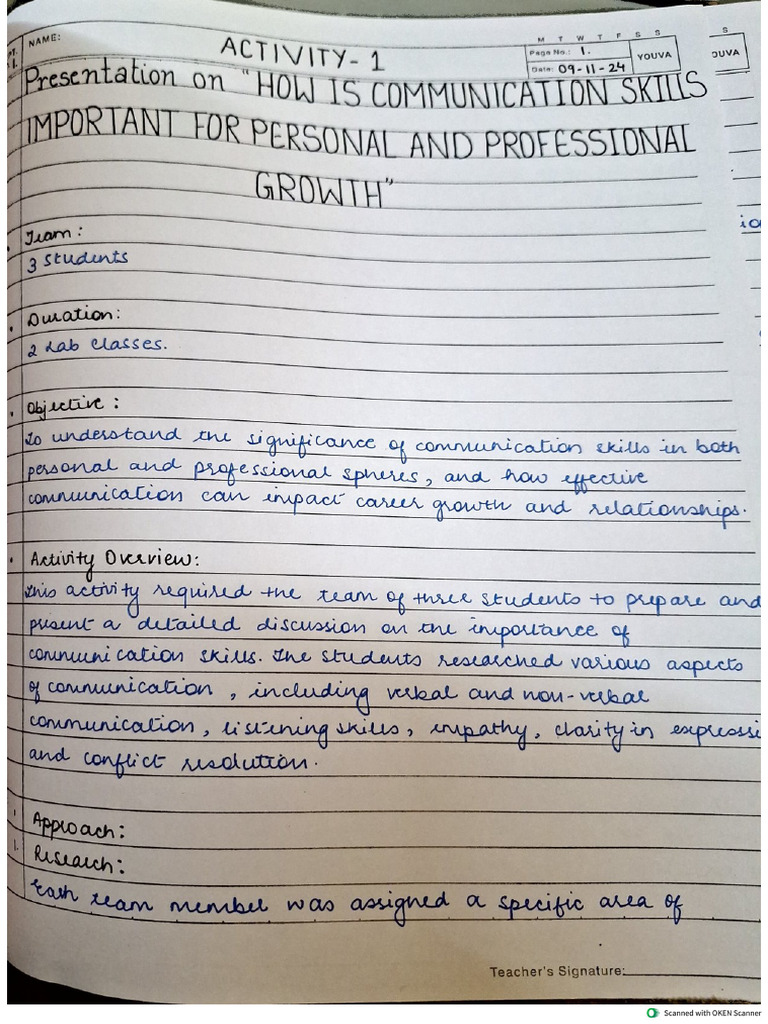 NAME:
M T W T F S S
Page No.: 1.
Date: 09-11-24
YOUVA
S
OUVA
ACTIVITY-1
Presentation on "HOW IS COMMUNICATION SKILLS
IMPORTANT FOR PERSONAL AND PROFESSIONAL
GROWTH"
Team:
3 Students
Duration:
2 Lab Classes.
Objective:
To understand the significance of communication skills in both
personal and professional spheres, and how effective
communication can impact career growth and relationships.
Activity Overview:
This activity required the team of three students to prepare and
present a detailed discussion on the importance of
communication skills. The students researched various aspects
of communication, including verbal and non-verbal
communication, listening skills, empathy, clarity in expressi
and conflict resolution.
Approach:
1. Research:
Each team member was assigned a specific area of
Teacher's Signature:
Scanned with OKEN Scanner